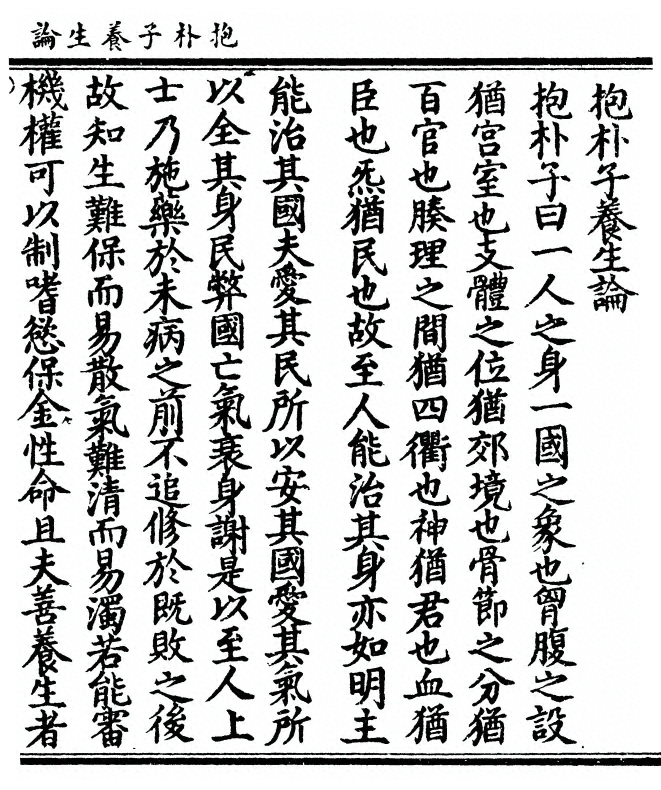 抱朴子養生論
抱朴子養生論
抱朴子曰一人之身一國之象也胷腹之設
猶宫室也支體之位猶郊境也骨節之分猶
百官也腠理之間猶四衢也神猶君也血猶
臣也炁猶民也故至人能治其身亦如明主
能治其國夫愛其民所以安其國愛其氣所
以全其身民弊國亡氣衰身謝是以至人上
士乃施藥於未病之前不追修於既敗之後
故知生難保而易散氣難清而易濁若能審
機權可以制嗜慾保金性命且夫善養生者